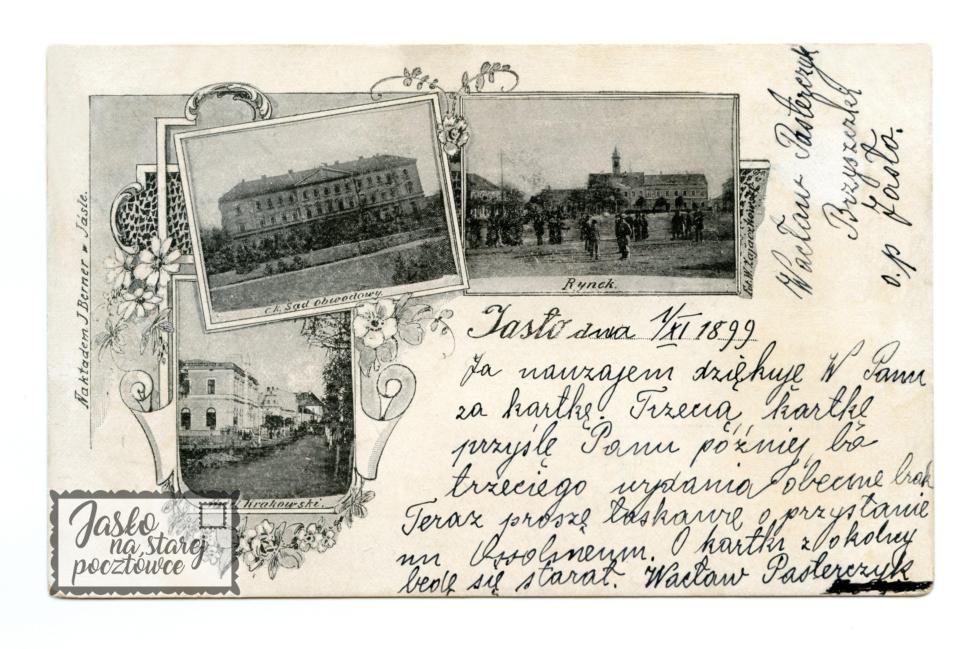 Nakładem J. Berner w Jaśle.
c.k. Sąd obwodowy.
Rynek.
Fot. W. Zajączkowski
krakowski.
Wacław Pasterczyk
Brzyszczki
o.p Jasło.
Jasło dnia 1/XI 1899
Ja nawzajem dziękuję W Panu
za kartkę. Trzecią kartkę
przyślę Panu później bo
trzeciego wydania obecnie brak
Teraz proszę łaskawie o przysłanie
mi Ossolineum. O kartki z okolicy
będę się starał. Wacław Pasterczyk
Jasło
na starej
pocztówce